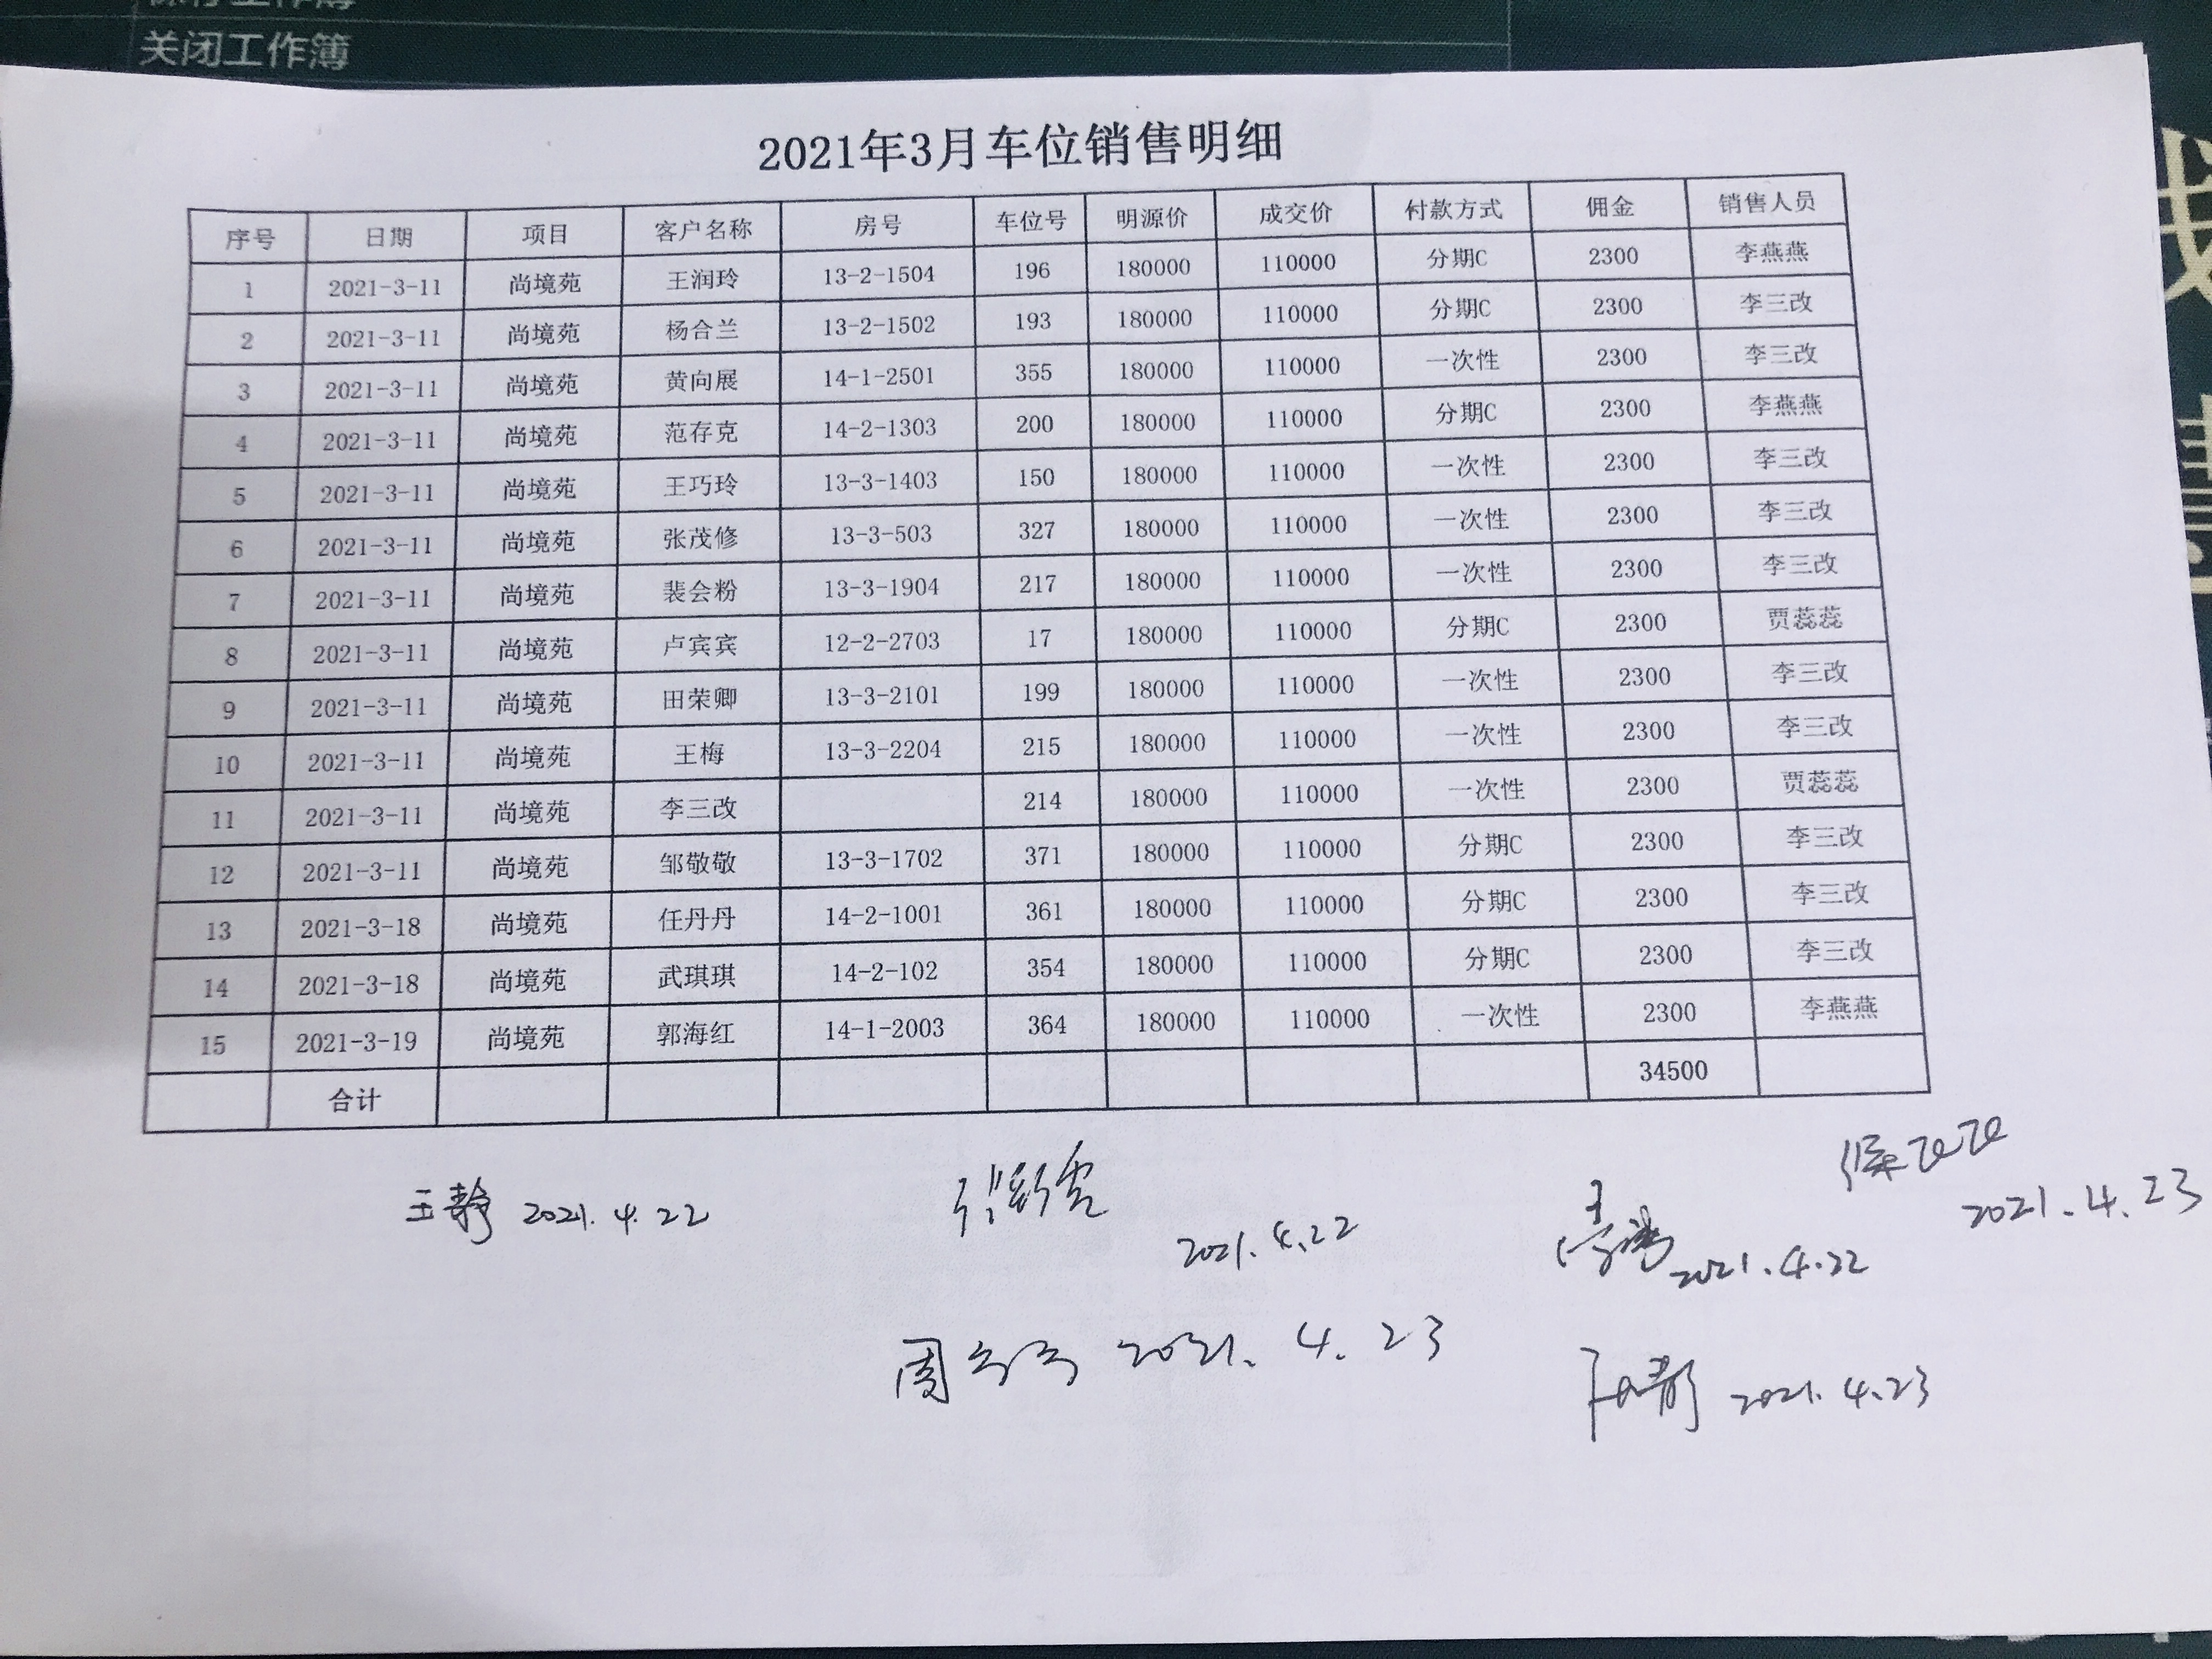 关闭工作簿
2021年3月车位销售明细
序号 日期 项目 客户名称 房号 车位号 明源价 成交价 付款方式 佣金 销售人员
1 2021-3-11 尚境苑 王润玲 13-2-1504 196 180000 110000 分期C 2300 李燕燕
2 2021-3-11 尚境苑 杨合兰 13-2-1502 193 180000 110000 分期C 2300 李三改
3 2021-3-11 尚境苑 黄向展 14-1-2501 355 180000 110000 一次性 2300 李三改
4 2021-3-11 尚境苑 范存克 14-2-1303 200 180000 110000 分期C 2300 李燕燕
5 2021-3-11 尚境苑 王巧玲 13-3-1403 150 180000 110000 一次性 2300 李三改
6 2021-3-11 尚境苑 张茂修 13-3-503 327 180000 110000 一次性 2300 李三改
7 2021-3-11 尚境苑 裴会粉 13-3-1904 217 180000 110000 一次性 2300 李三改
8 2021-3-11 尚境苑 卢宾宾 12-2-2703 17 180000 110000 分期C 2300 贾蕊蕊
9 2021-3-11 尚境苑 田荣卿 13-3-2101 199 180000 110000 一次性 2300 李三改
10 2021-3-11 尚境苑 王梅 13-3-2204 215 180000 110000 一次性 2300 李三改
11 2021-3-11 尚境苑 李三改 214 180000 110000 一次性 2300 贾蕊蕊
12 2021-3-11 尚境苑 邹敬敬 13-3-1702 371 180000 110000 分期C 2300 李三改
13 2021-3-18 尚境苑 任丹丹 14-2-1001 361 180000 110000 分期C 2300 李三改
14 2021-3-18 尚境苑 武琪琪 14-2-102 354 180000 110000 分期C 2300 李三改
15 2021-3-19 尚境苑 郭海红 14-1-2003 364 180000 110000 一次性 2300 李燕燕
合计 34500
王静 2021.4.22
2021.4.22
2021.4.22
2021.4.23
周 2021.4.23
2021.4.23